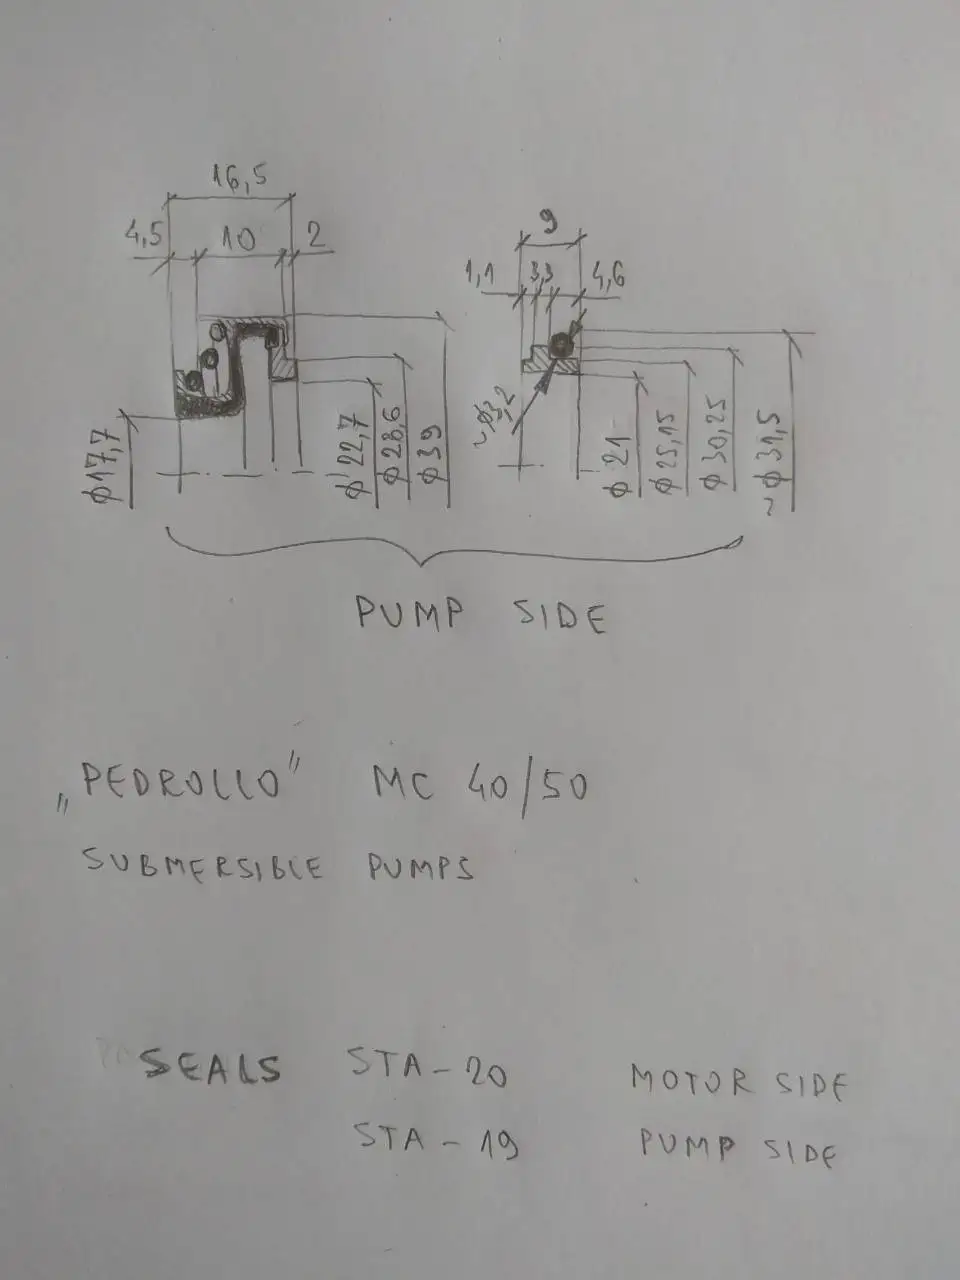 16,5
4,5 10 2
9
1,1 3,3 4,6
~ φ3,2
φ17,7
φ22,7
φ28,6
φ39
φ21
φ25,15
φ30,25
~ φ31,5
PUMP SIDE
„PEDROLLO” MC 40/50
SUBMERSIBLE PUMPS
SEALS STA-20 MOTOR SIDE
STA-19 PUMP SIDE